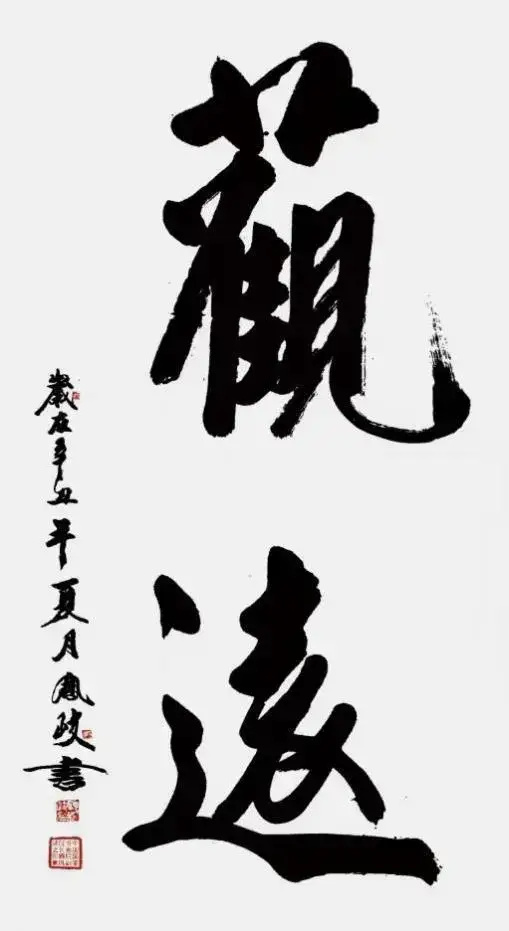 觀遠
歲在辛丑年夏月憲政書